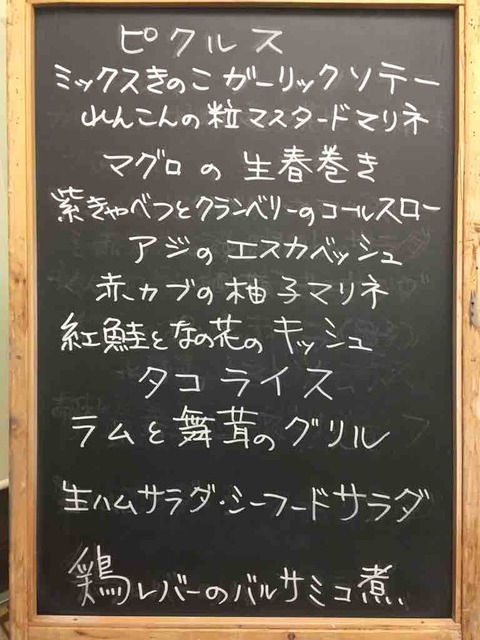 ピクルス
ミックスきのこガーリックソテー
れんこんの粒マスタードマリネ
マグロの生春巻き
紫きゃべつとクランベリーのコールスロー
アジのエスカベッシュ
赤カブの柚子マリネ
紅鮭となの花のキッシュ
タコライス
ラムと舞茸のグリル
生ハムサラダ・シーフードサラダ
鶏レバーのバルサミコ煮